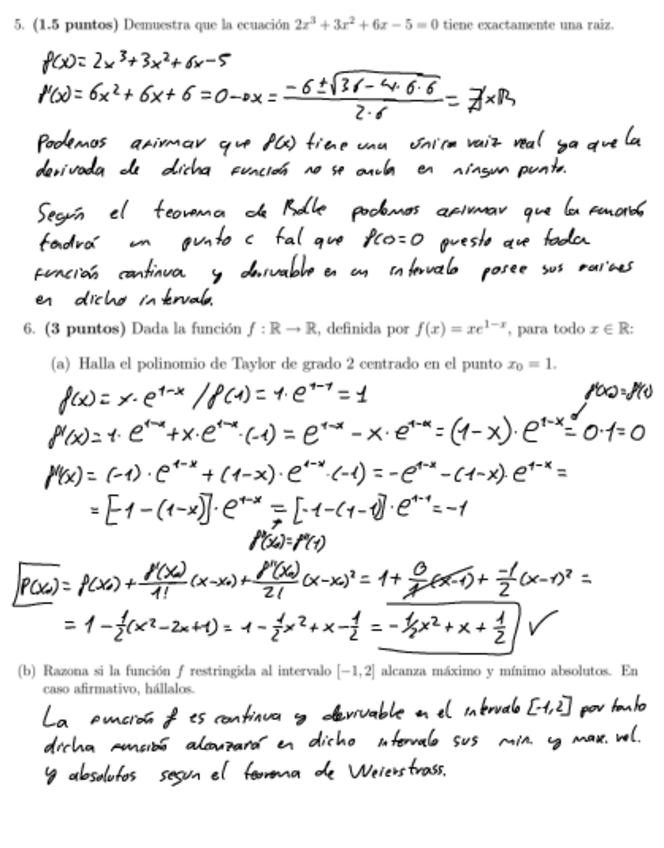 5. (1.5 puntos) Demuestra que la ecuación 2x³ + 3x² + 6x − 5 = 0 tiene exactamente una raiz.
f(x) = 2x³+3x²+6x−5
f'(x) = 6x²+6x+6 = 0 → x = (−6 ± √(36 − 4·6·6)) / (2·6) = ∄ x ℝ
Podemos afirmar que f(x) tiene una única raiz real ya que la
derivada de dicha función no se anula en ningun punto.
Según el teorema de Rolle podemos afirmar que la función
tendrá un punto c tal que f(c)=0 puesto que toda
función continua y derivable en un intervalo posee sus raices
en dicho intervalo.
6. (3 puntos) Dada la función f : ℝ → ℝ, definida por f(x) = xe^{1−x}, para todo x ∈ ℝ:
(a) Halla el polinomio de Taylor de grado 2 centrado en el punto x₀ = 1.
f(x) = x·e^{1−x} / f(1) = 1·e^{1−1} = 1
f'(x₀)=f'(1)
f'(x) = 1·e^{1−x} + x·e^{1−x}·(−1) = e^{1−x} − x·e^{1−x} = (1−x)·e^{1−x} = 0·1 = 0
f''(x) = (−1)·e^{1−x} + (1−x)·e^{1−x}·(−1) = −e^{1−x} − (1−x)·e^{1−x} =
= [−1−(1−x)]·e^{1−x} = [−1−(1−1)]·e^{1−1} = −1
f''(x₀)=f''(1)
P(x₀) = f(x₀) + f'(x₀)/1! (x−x₀) + f''(x₀)/2! (x−x₀)² = 1 + 0/1 (x−1) + −1/2 (x−1)² =
= 1 − 1/2(x²−2x+1) = 1 − 1/2x² + x − 1/2 = −1/2x² + x + 1/2 ✓
(b) Razona si la función f restringida al intervalo [−1, 2] alcanza máximo y mínimo absolutos. En
caso afirmativo, hállalos.
La función f es continua y derivable en el intervalo [−1,2] por tanto
dicha función alcanzará en dicho intervalo sus min. y max. rel.
y absolutos segun el teorema de Weierstrass.